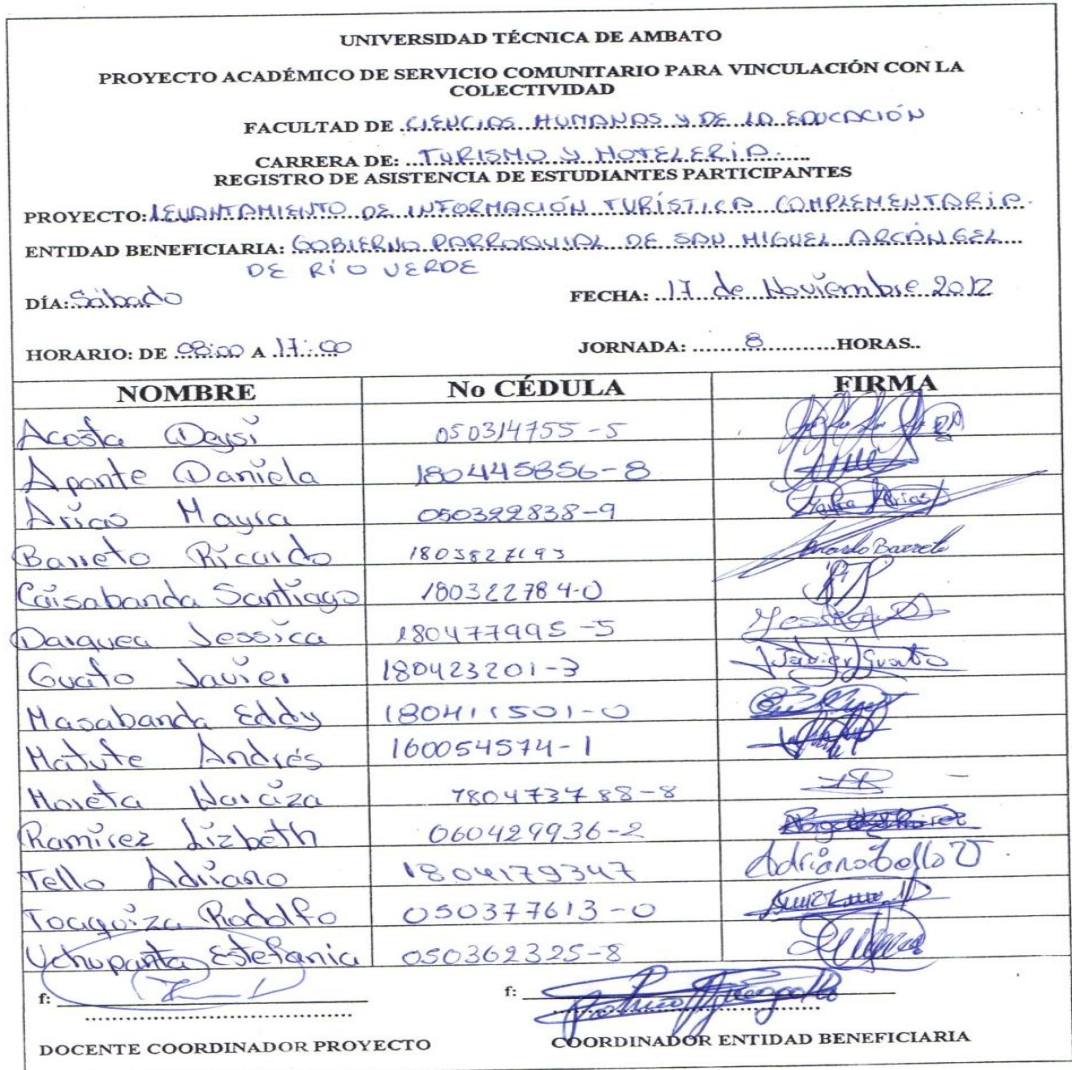 UNIVERSIDAD TÉCNICA DE AMBATO
PROYECTO ACADÉMICO DE SERVICIO COMUNITARIO PARA VINCULACIÓN CON LA
COLECTIVIDAD
FACULTAD DE CIENCIAS HUMANAS Y DE LA EDUCACIÓN
CARRERA DE: TURISMO Y HOTELERÍA
REGISTRO DE ASISTENCIA DE ESTUDIANTES PARTICIPANTES
PROYECTO: LEVANTAMIENTO DE INFORMACIÓN TURÍSTICA COMPLEMENTARIA.
ENTIDAD BENEFICIARIA: GOBIERNO PARROQUIAL DE SAN MIGUEL ARCÁNGEL
DE RÍO VERDE
DÍA: Sábado FECHA: 17 de Noviembre 2012
HORARIO: DE 08:00 A 17:00 JORNADA: 8 HORAS..
NOMBRE No CÉDULA FIRMA
Acosta Deysi 050314755-5
Aponte Daniela 180445856-8
Arias Mayra 050322838-9 Mayra Arias
Barreto Ricardo 1803827193 Ricardo Barreto
Caisabanda Santiago 180322784-0
Darquea Jessica 180477995-5 Jessica
Guato Javier 180423201-3 Javier Guato
Masabanda Eddy 180411501-0
Matute Andrés 160054574-1
Moreta Narciza 180473788-8
Ramírez Lizbeth 060429936-2
Tello Adriano 1804179347 Adriano Tello V
Toaquiza Rodolfo 050377613-0
Uchupanta Estefania 050362325-8
f: f:
DOCENTE COORDINADOR PROYECTO COORDINADOR ENTIDAD BENEFICIARIA